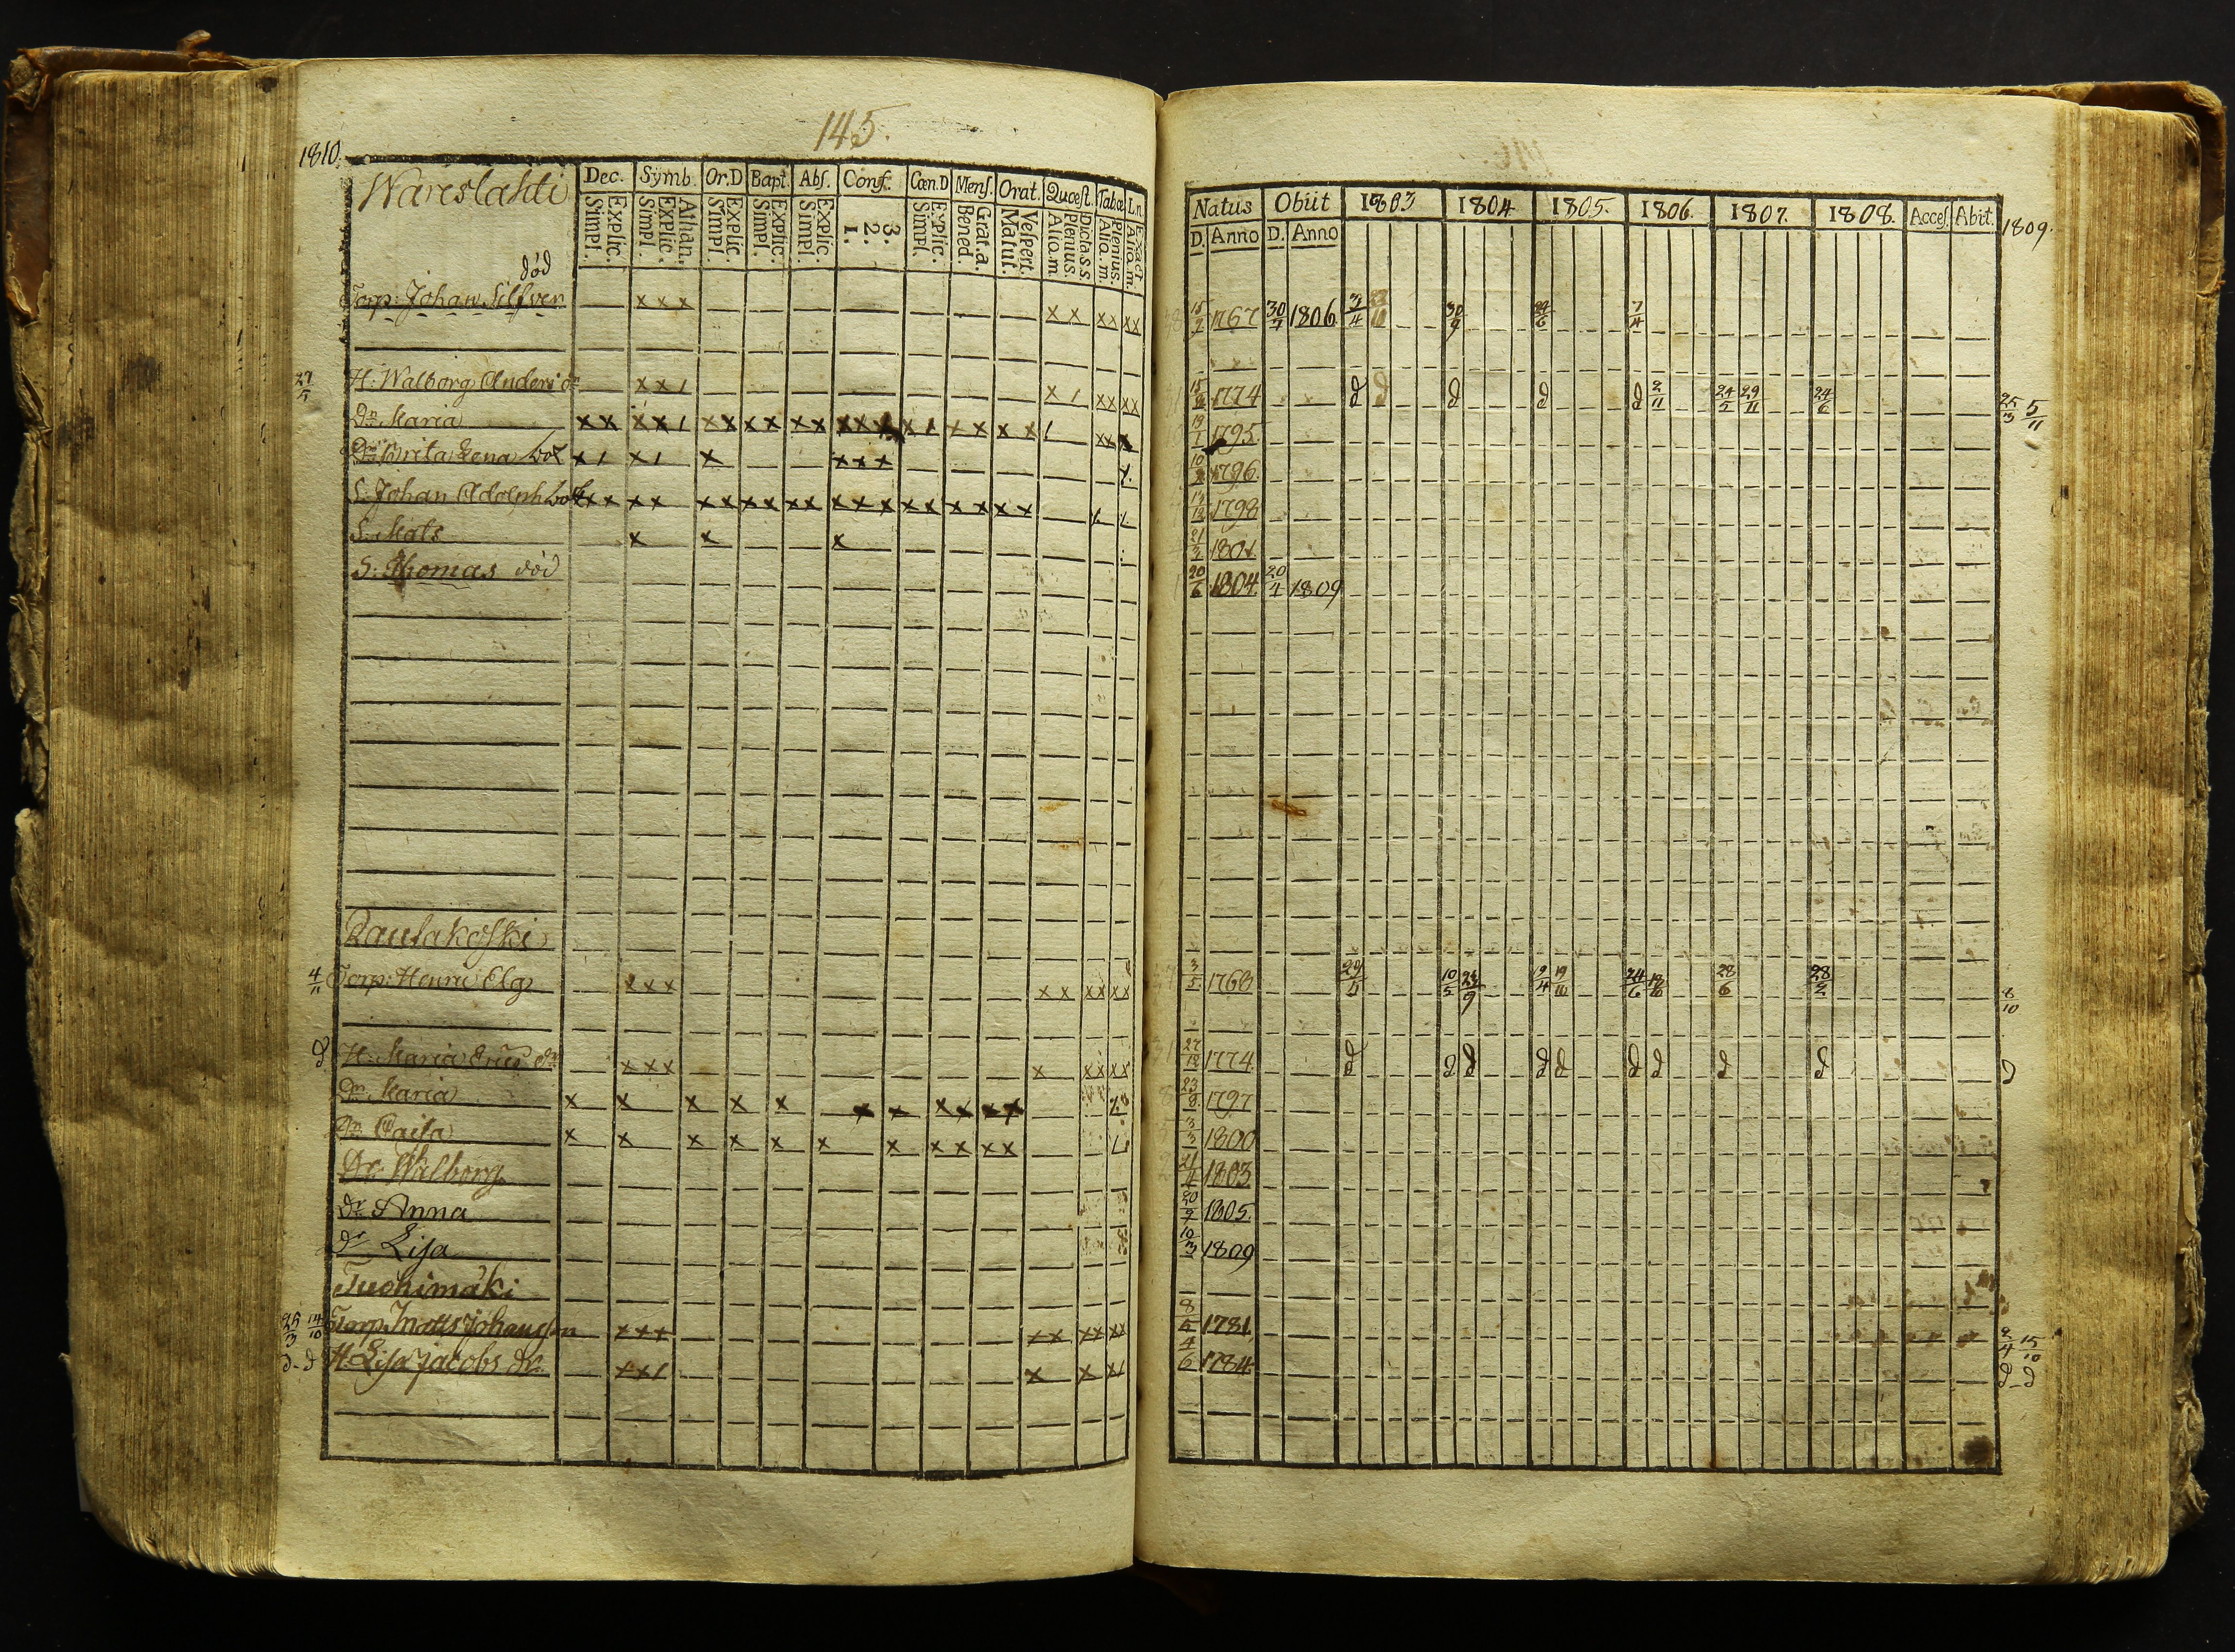 145.
1810.
Wareslahti
Dec. Symb. Or.D Bapt. Abs. Conf. Cœn.D Mens. Orat. Quæst. Tabæ Ln.
Explic. Simpl. Athan. Explic. Simpl. Explic. Simpl. Explic. Simpl. Explic. Simpl. 3. 2. 1. Explic. Simpl. Grat.a. Bened. Vespert. Matut. Dicta.s.s. Plenius. Alio.m. Plenius. Alio.m. Exact Alio.m.
död
Torp: Johan Silfven x x x x x x x x x
27/5 H: Walborg Anders dr x x 1 x 1 x x x x
Dr Maria x x x x 1 x x x x x x x x x x 1 x x x x 1 x x
Dr Brita Lena x 1 x 1 x x x x
S. Johan Adolph x x x x x x x x x x x x x x x x x x x
S. Mats x x x
S: Thomas död
Rautakoski
4/11 Torp: Henric Elg x x x x x x x x x
d H: Maria Erics dr x x x x x x x x
Dr Maria x x x x x x x x x x x
Dr Caisa x x x x x x x x x x x
Dr Walborg
Dr Anna
Dr Lisa
Tuohimäki
25/3 14/10 Torp. Matts Johansson x x x x x x x x x
d - d H: Lisa Jacobs dr. x x 1 x x x x
Natus Obiit 1803 1804 1805. 1806. 1807. 1808. Acces. Abit. 1809.
D. Anno D. Anno
1767 30/7 1806 3/4 30/9 24/6 7/4
1774 d d d d d 2/11 24/5 29/11 24/6 25/3 5/11
1795
1796.
1798
1801.
20/6 1804. 20/4 1809
3/5 1763 10/5 19/4 19/10 24/6 28/6 28/2 8/10
27/12 1774 d d d d d d d d d d
23/8 1797
3/3 1800
21/4 1803
20/9 1805.
10/3 1809
1781 2/4 15/10
4/6 1784 d - d